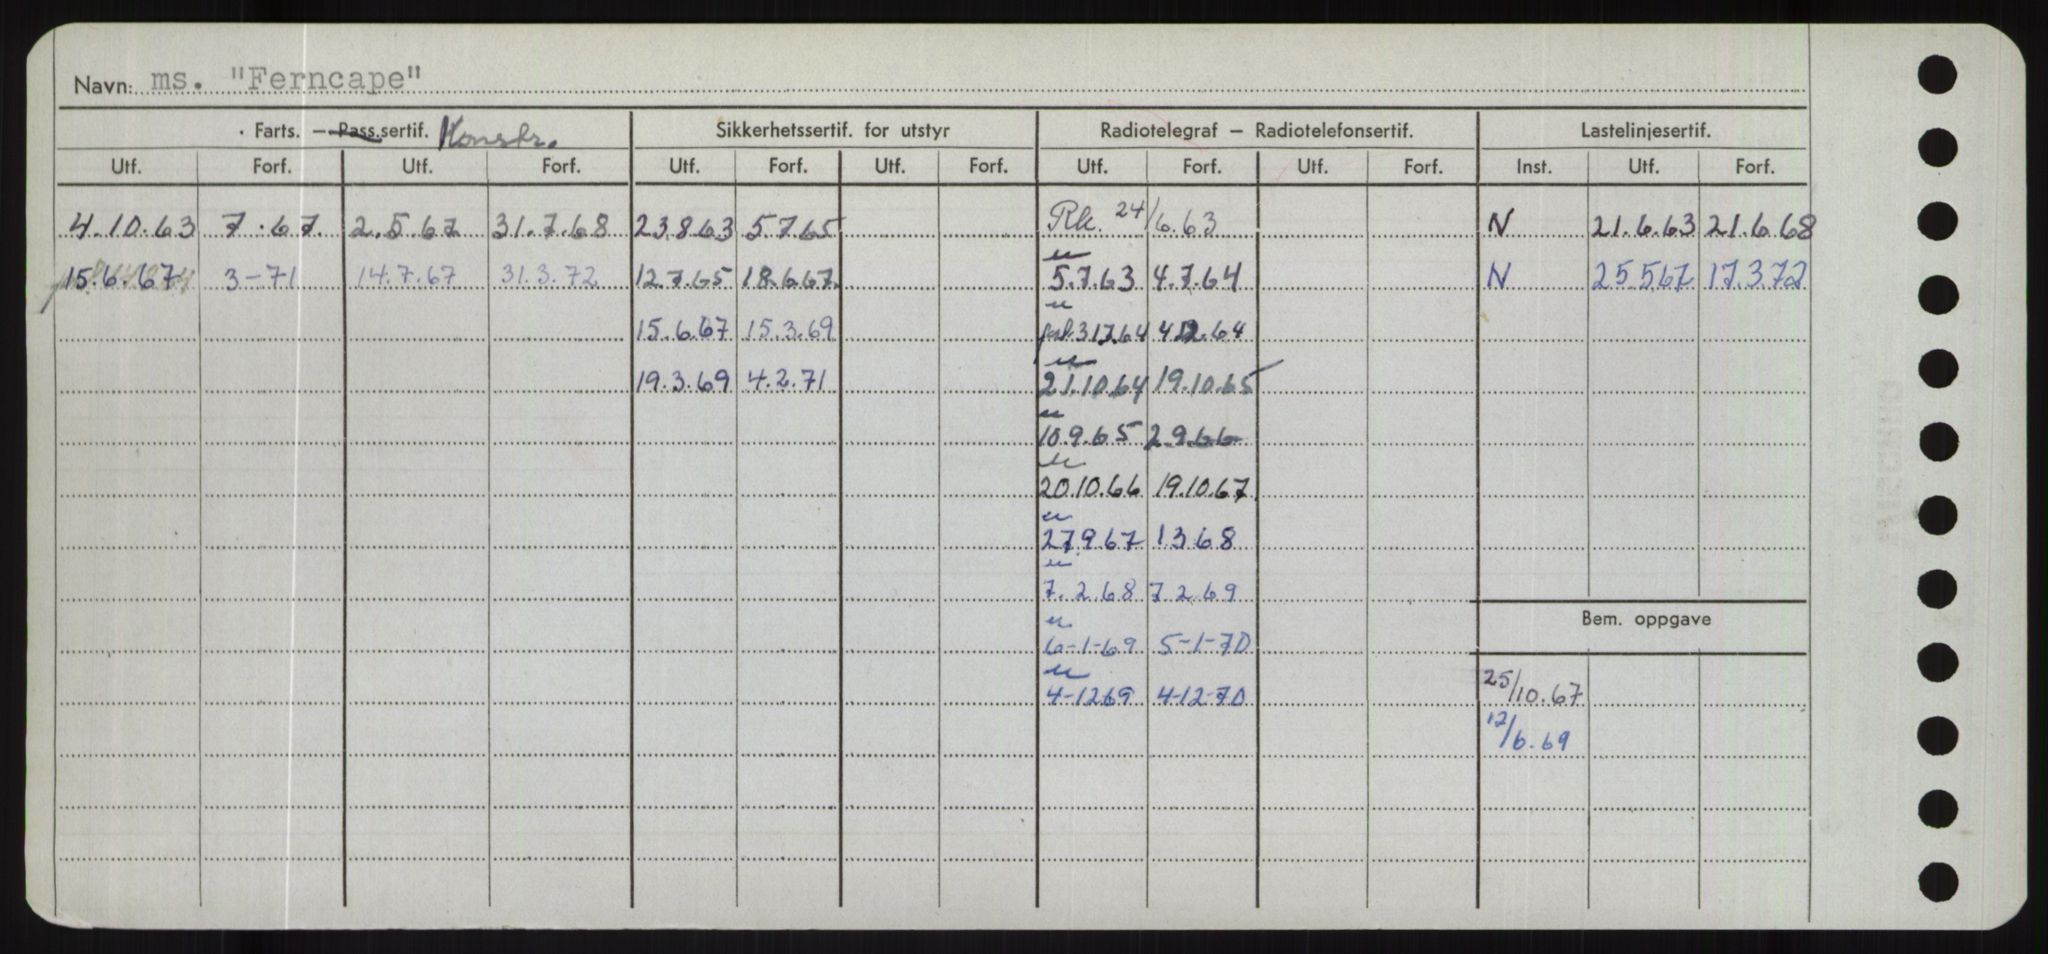 Navn: ms. "Ferncape"
Farts. – Pass.sertif. Konstr. Sikkerhetssertif. for utstyr Radiotelegraf – Radiotelefonsertif. Lastelinjesertif.
Utf. Forf. Utf. Forf. Utf. Forf. Utf. Forf. Utf. Forf. Utf. Forf. Inst. Utf. Forf.
4.10.63 7.67. 2.5.67 31.7.68 23863 5765 Rk. 24/6.63 N 21.6.63 21.6.68
15.6.67 3-71 14.7.67 31.3.72 12.7.65 18.6.67. 5.7.63 4.7.64 N 25.5.67 17.3.72
15.6.67 15.3.69 31.7.64 4.12.64
19.3.69 4.2.71 21.10.64 19.10.65
10.9.65 2.9.66
20.10.66 19.10.67
27.9.67 1.3.68
7.2.68 7.2.69
Bem. oppgave
6-1-69 5-1-70
25/10.67
4-12.69 4-12-70
12/6.69